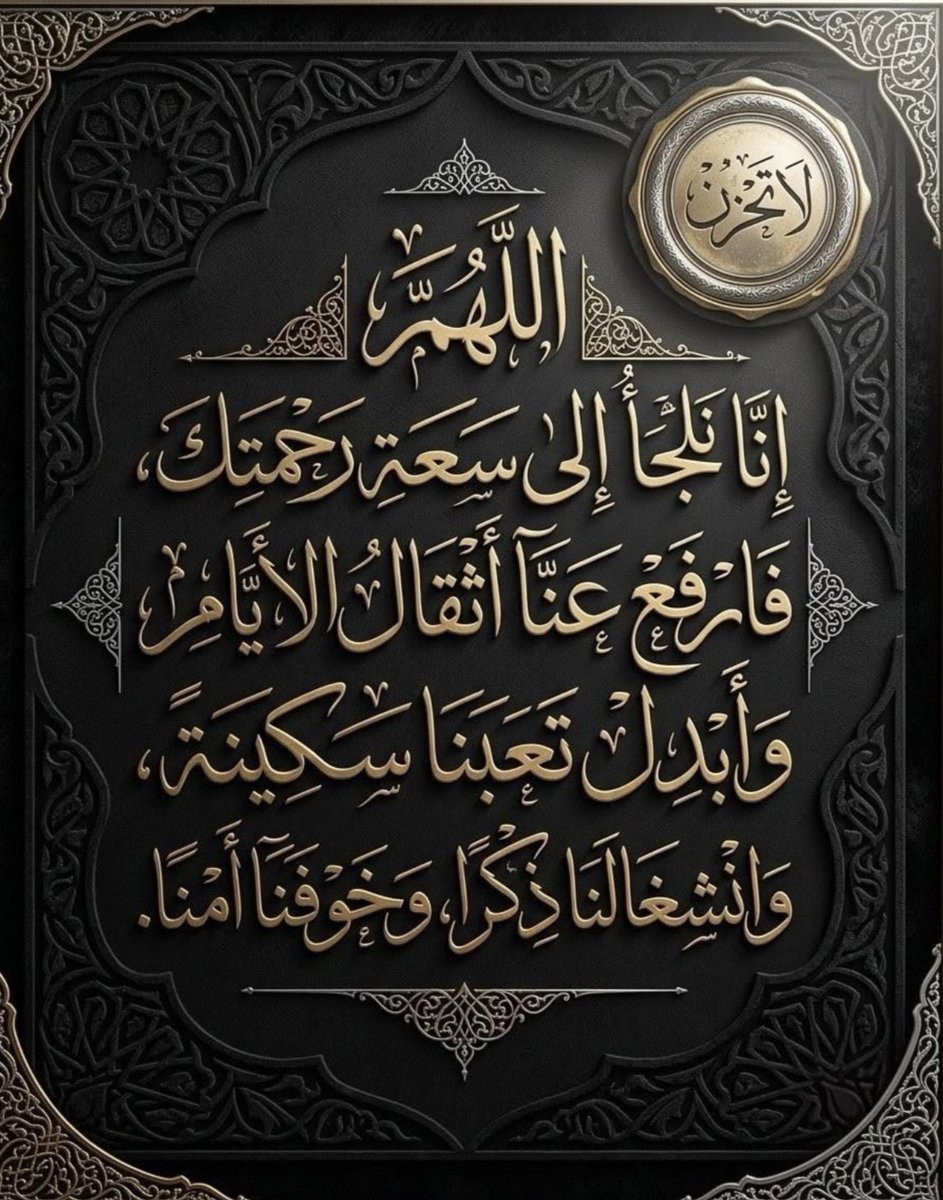 لَا تَحْزَنْ
اللَّهُمَّ
إِنَّا نَلْجَأُ إِلى سَعَةِ رَحْمَتِكَ،
فَارْفَعْ عَنَّا أَثْقَالُ الأَيَّامِ
وَأَبْدِلْ تَعَبَنَا سَكِينَةً،
وَانْشِغَالَنَا ذِكْرًا، وَخَوْفَنَا أَمْنًا.